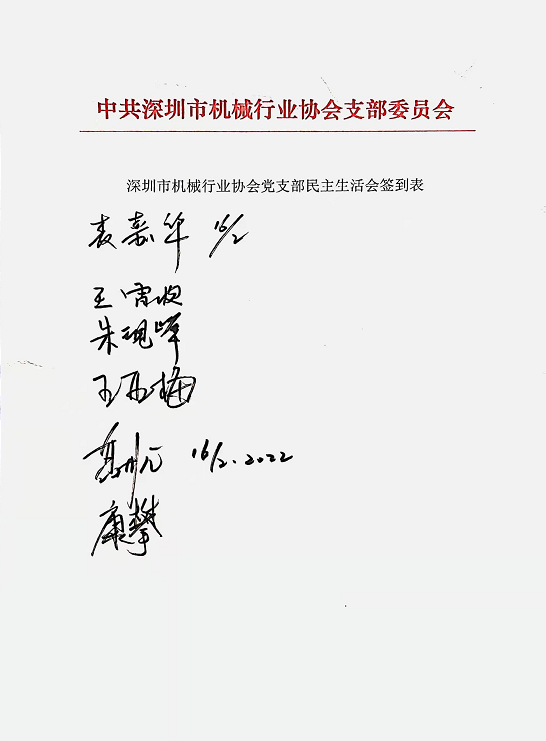 中共深圳市机械行业协会支部委员会
深圳市机械行业协会党支部民主生活会签到表
袁嘉华 16/2
王
朱现峰
王亚梅
16/2.2022
康攀